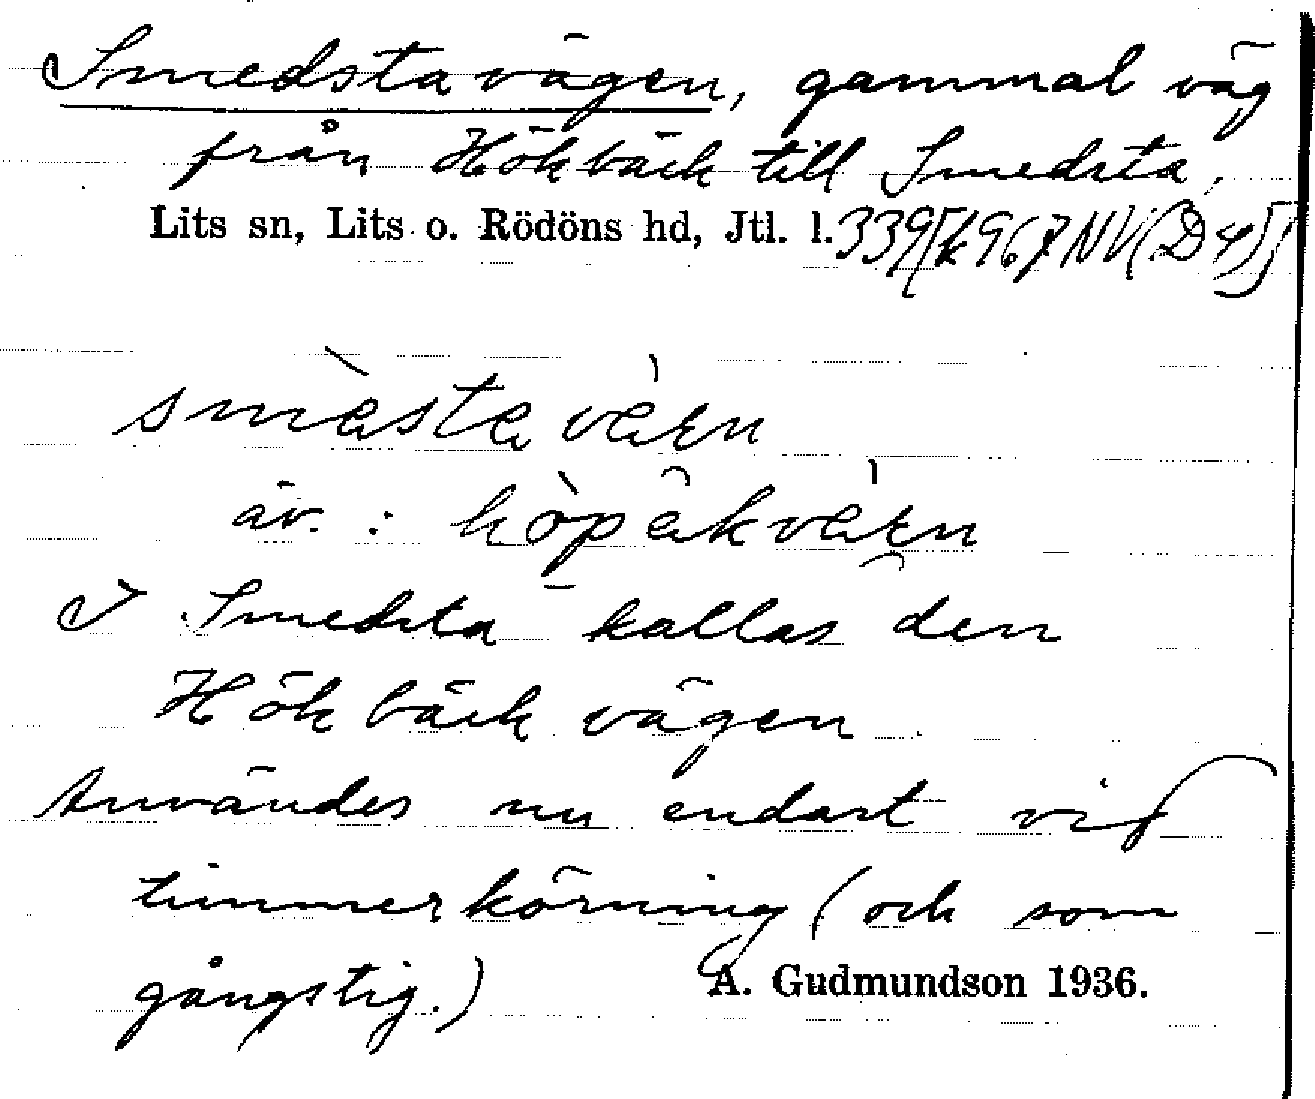 Smedstavägen, gammal väg
från Hökbäck till Smedsta.
Lits sn, Lits o. Rödöns hd, Jtl. l. 339
smɛ̀stavɛ̀ɛn
äv. : hö̀pɛ̂kvɛ̀ɛn
I Smedsta kallas den
Hökbäckvägen.
Användes nu endast vid
timmerkörning (och som
gångstig.)
A. Gudmundson 1936.